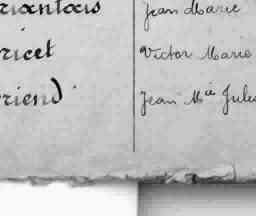 riantais Jean Marie
ricet Victor Marie
riend Jean Mie Jules